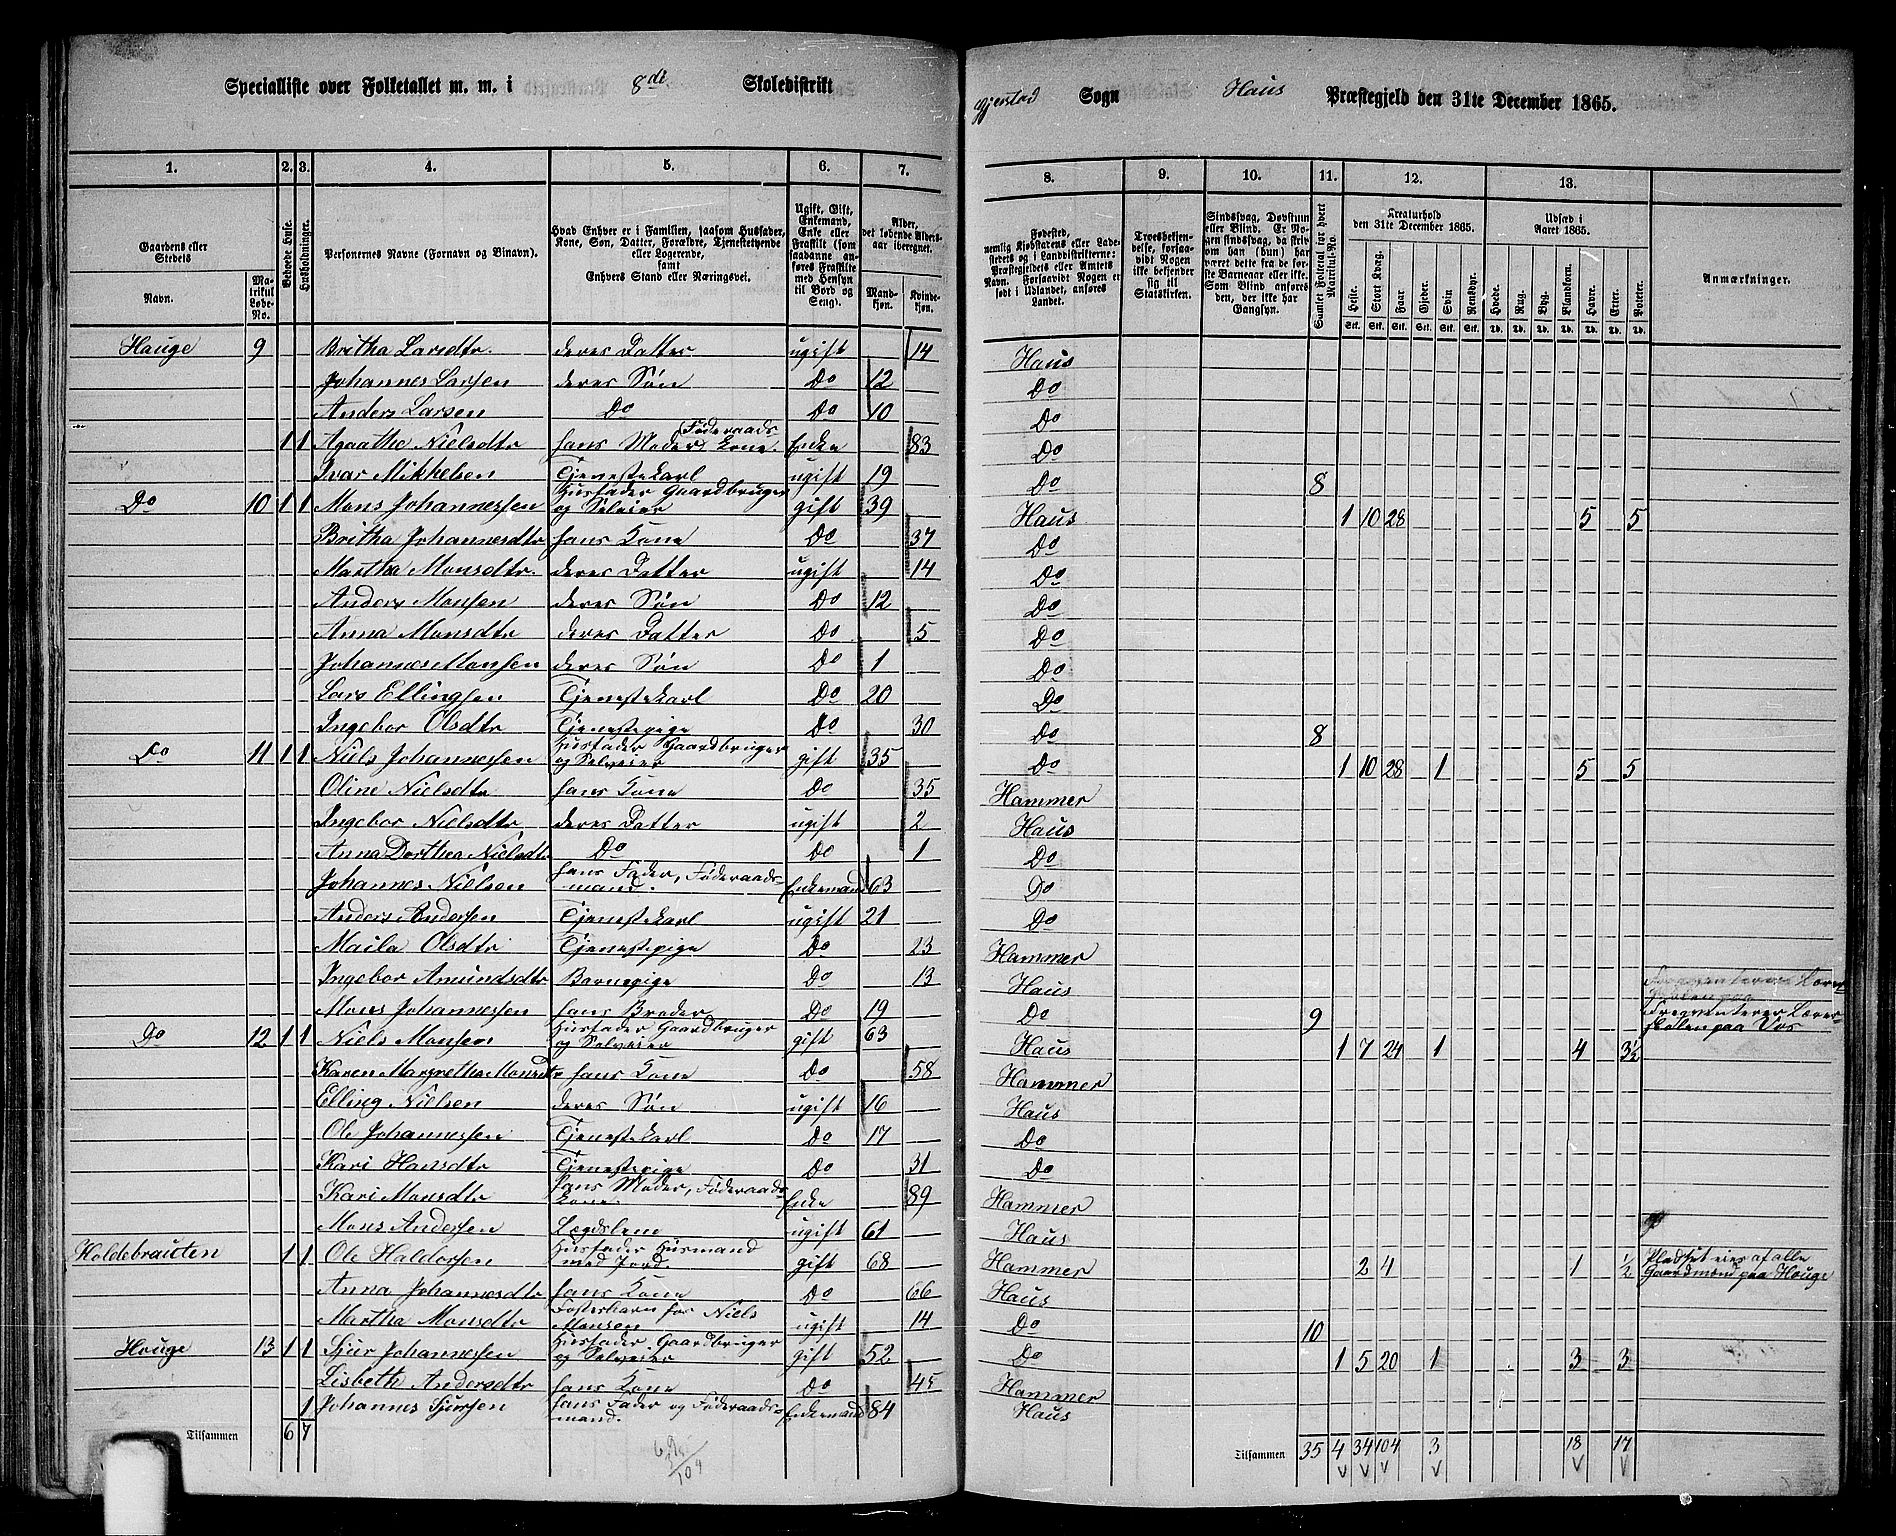 Specialliste over Folketallet m. m. i 8de Skoledistrikt
Gjerstad Sogn Haus Præstegjeld den 31te December 1865.
1. 2. 3. 4. 5. 6. 7.
8. 9. 10. 11. 12. 13.
Gaardens eller Stedets
Navn. Matrikul Løbe-No.
Beboede Huse.
Husholdninger.
Personernes Navne (Fornavn og Binavn).
Hvad Enhver er i Familien, saasom Husfader, Kone, Søn, Datter, Forældre, Tjenestetyende eller Logerende, samt Enhvers Stand eller Næringsvei.
Ugift, Gift, Enkemand, Enke eller Fraskilt (som saadanne anføres Fraskilte med Hensyn til Bord og Seng).
Alder, det løbende Aldersaar iberegnet.
Mandkjøn. Kvindekjøn.
Fødested, nemlig Kjøbstadens eller Ladestedets og i Landdistrikterne: Præstegjeldets eller Amtets Navn. Forsaavidt Nogen er født i Udlandet, anføres Landet.
Troesbekjendelse, forsaavidt Nogen ikke bekjender sig til Statskirken.
Sindssvag, Døvstum eller Blind. Er Nogen sindssvag, da skrives om han (hun) har været dette fra de første Barneaar eller ikke. Som Blind anføres den, der ikke har Gangsyn.
Samlet Folketal for hvert Matrikul-No.
Kreaturhold den 31te December 1865.
Heste. Stort Kvæg. Faar. Gjeder. Svin. Rensdyr.
Udsæd i Aaret 1865.
Hvede. Rug. Byg. Blandkorn. Havre. Erter. Poteter.
Anmærkninger.
Hauge 9 Britha Larsdtr. deres Datter ugift 14 Haus
Johannes Larsen deres Søn Do 12 Do
Anders Larsen Do Do 10 Do
1 1 Agathe Nielsdtr hans Moder Føderaads Kone. Enke 83 Do
Ivar Mikkelsen Tjenestekarl ugift 19 Do 8
Do 10 1 1 Mons Johannessen Husfader Gaardbruger og Selveier gift 39 Haus 1 10 28 5 5
Britha Johannesdtr hans Kone Do 37 Do
Martha Monsdtr. deres Datter ugift 14 Do
Anders Monsen deres Søn Do 12 Do
Anna Monsdtr deres Datter Do 5 Do
Johannes Monsen deres Søn Do 1 Do
Lars Ellingsen Tjenestekarl Do 20 Do
Ingebor Olsdtr Tjenestepige Do 30 Do 8
Do 11 1 1 Niels Johannessen Husfader Gaardbruger og Selveier gift 35 Do 1 10 28 1 5 5
Oline Nielsdtr hans Kone Do 35 Hammer
Ingebor Nielsdtr deres Datter ugift 2 Haus
Anna Dorthea Nielsdtr Do Do 1 Do
Johannes Nielsen hans Fader, Føderaadsmand. Enkemand 63 Do
Anders Andersen Tjenestekarl ugift 21 Do
Maila Olsdtr Tjenestepige Do 23 Hammer
Ingebor Amundsdtr Barnepige Do 13 Haus
Mons Johannessen hans Broder Do 19 Do 9 Frequenterer Lærerskolen paa Vos
Do 12 1 1 Niels Monsen Husfader Gaardbruger og Selveier gift 63 Haus 1 7 24 1 4 3½
Karen Margretha Monsdtr hans Kone Do 58 Hammer
Elling Nielsen deres Søn ugift 16 Haus
Ole Johannessen Tjenestekarl Do 17 Do
Kari Hansdtr Tjenestepige Do 31 Do
Kari Monsdtr hans Moder, Føderaadskone. Enke 89 Hammer
Mons Andersen Lægdslem ugift 61 Haus
Holdebrauten 1 1 Ole Haldorsen Husfader Husmand med Jord. gift 68 Hammer 2 4 1 ½ Pladset eies af alle Gaardmænd paa Houge
Anna Johannesdtr hans Kone Do 66 Haus
Martha Monsdtr Fosterbarn for Niels Monsen ugift 14 Do 10
Houge 13 1 1 Sjur Johannessen Husfader Gaardbruger og Selveier gift 52 Do 1 5 20 1 3 3
Lisbeth Andersdtr hans Kone Do 45 Hammer
1 Johannes Sjursen hans Fader og Føderaadsmand. Enkemand 84 Haus
Tilsammen 6 7
Tilsammen 35 4 34 104 3 18 17